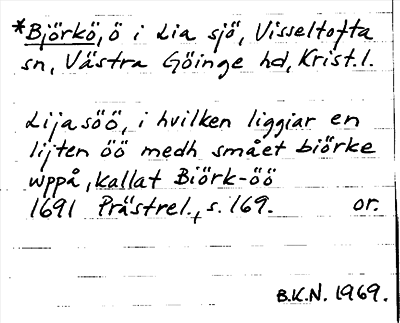 *Björkö, ö i Lia sjö, Visseltofta
sn, Västra Göinge hd, Krist. l.
Lijasöö, i hvilken liggiar en
lijten öö medh smået biörke
wppå, kallat Biörk-öö
1691 Prästrel., s. 169. or.
B.K.N. 1969.